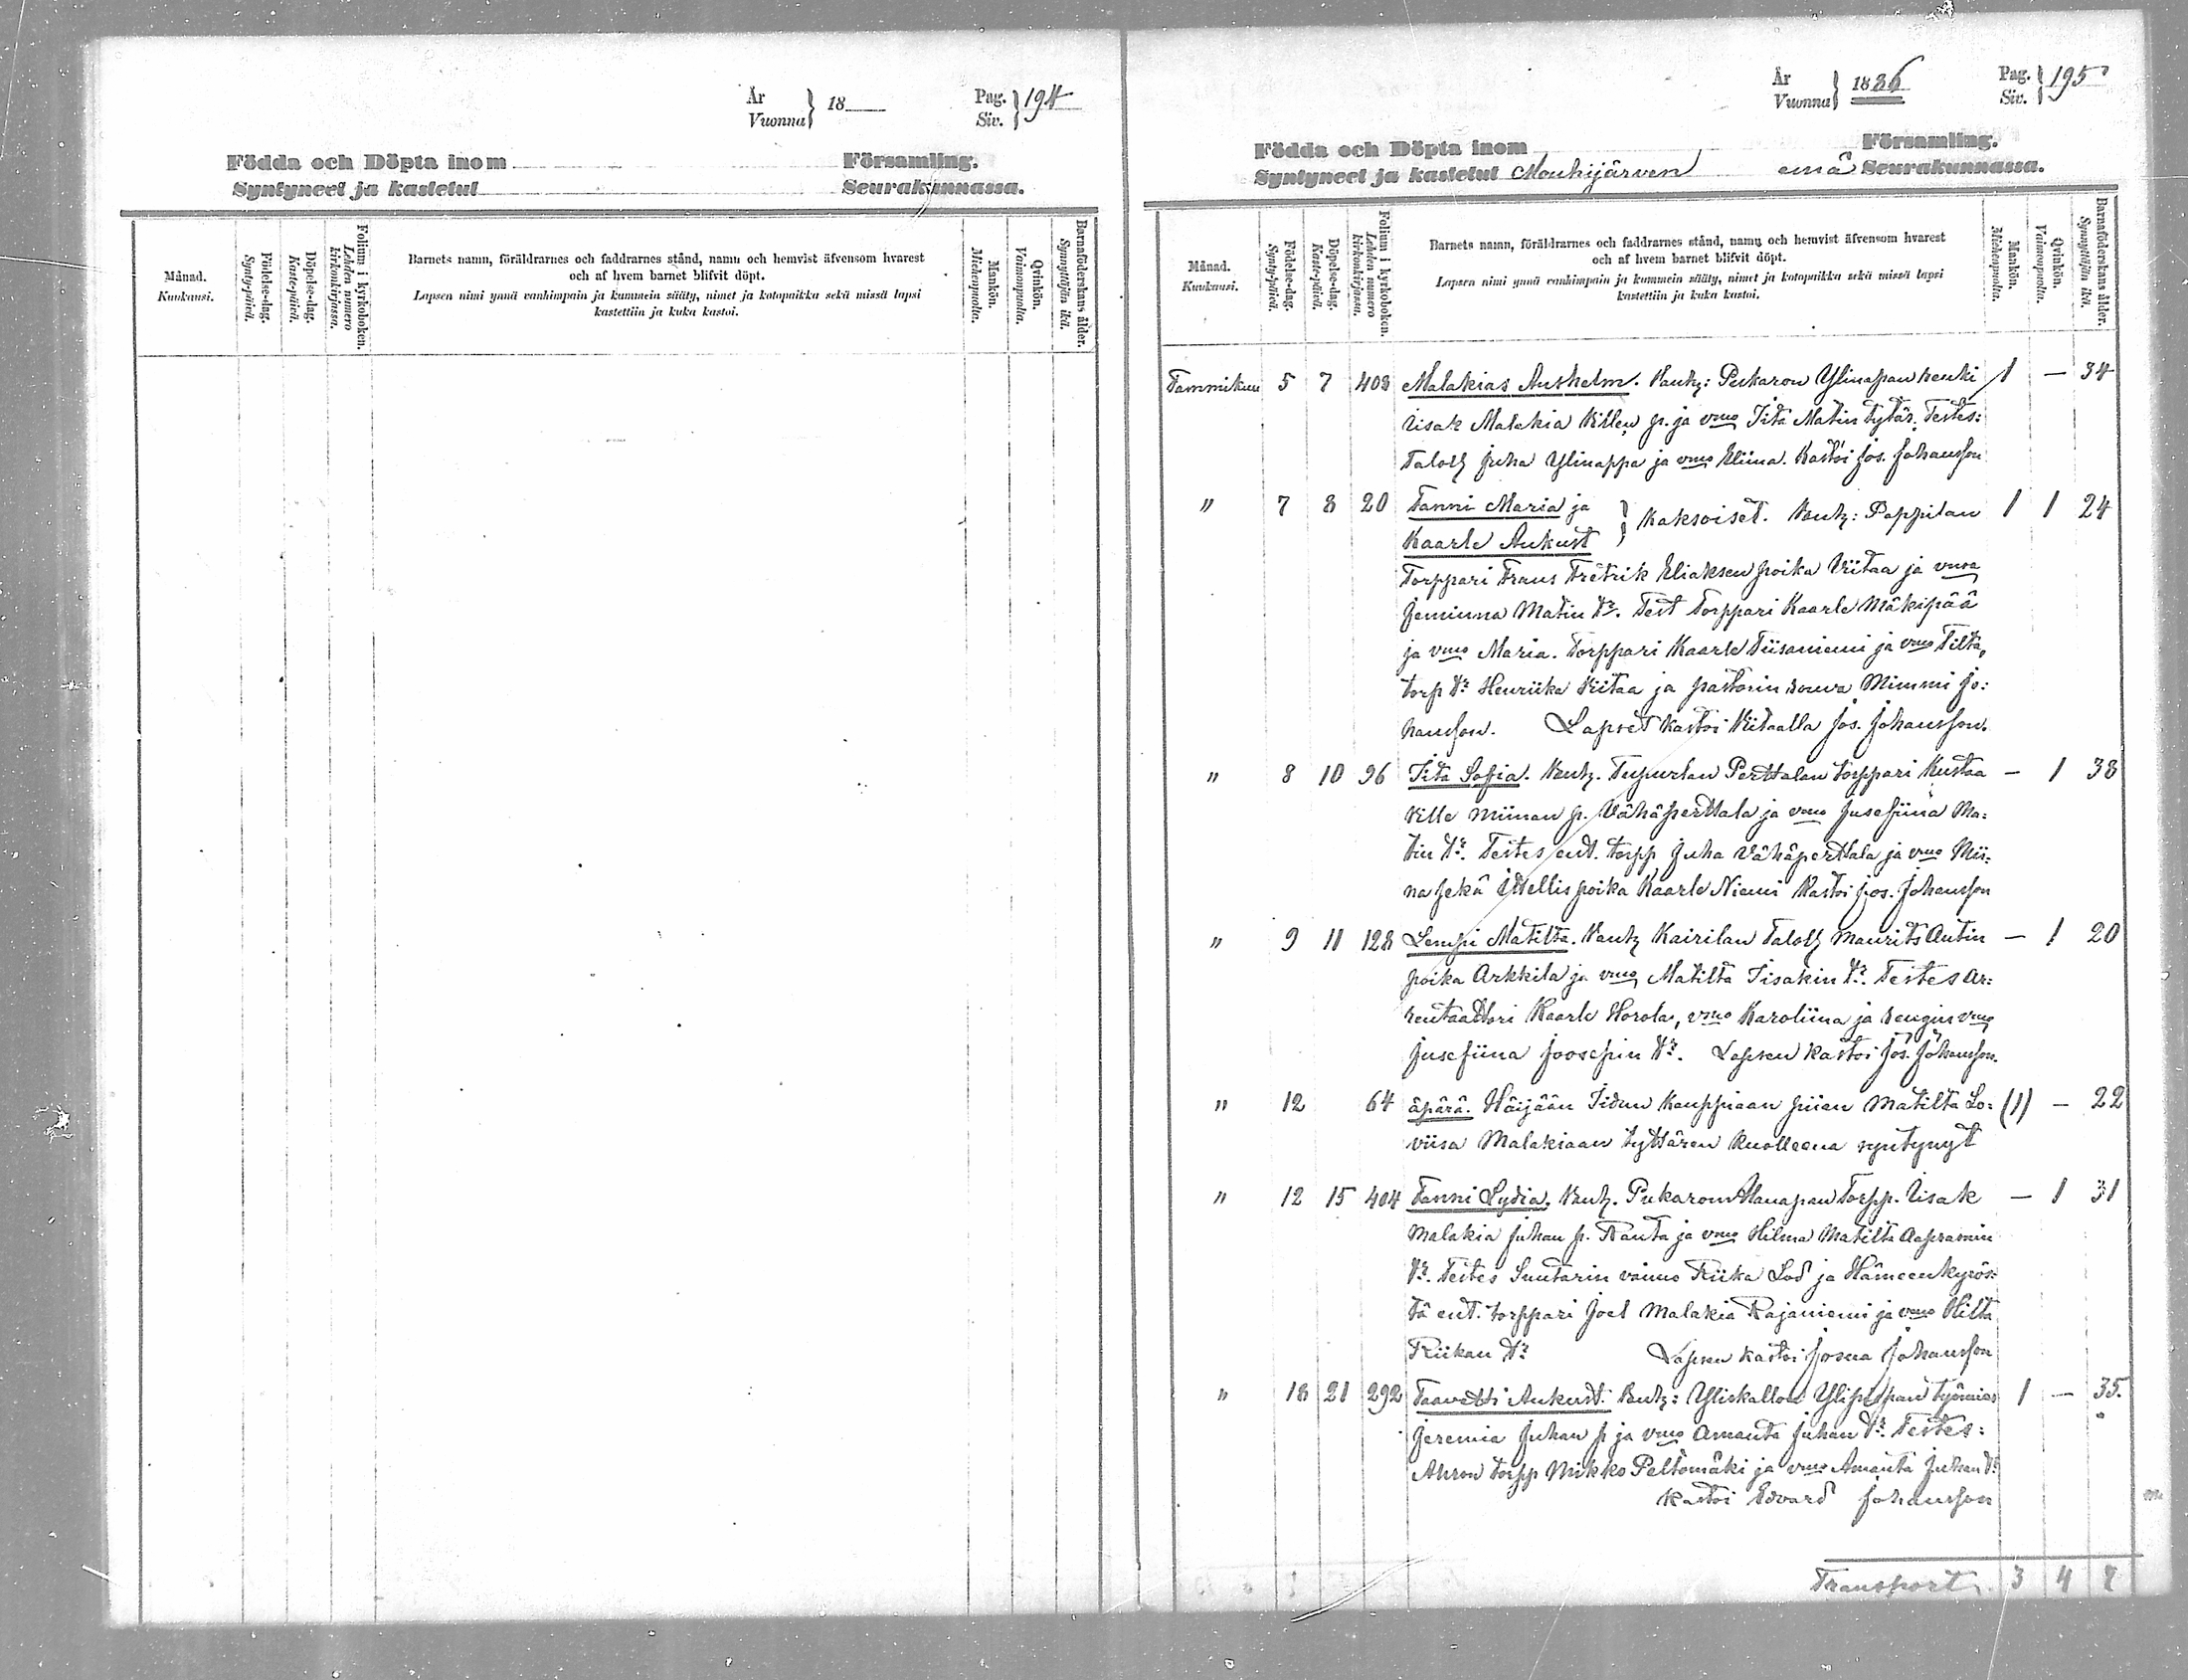 År
Vuonna } 18
Pag.
Siv. } 194
Födda och Döpta inom Församling.
Syntyneet ja kastetut Seurakunnassa.
Månad.
Kuukausi.
Födelse-dag.
Synty-päivä.
Döpelse-dag.
Kaste-päivä.
Folium i kyrkoboken.
Lehden numero
kirkonkirjassa.
Barnets namn, föräldrarnes och faddrarnes stånd, namn och hemvist äfvensom hvarest
och af hvem barnet blifvit döpt.
Lapsen nimi ynnä vanhimpain ja kummein sääty, nimet ja kotopaikka sekä missä lapsi
kastettiin ja kuka kastoi.
Mankön.
Miehenpuolta.
Qvinkön.
Vaimonpuolta.
Barnaföderskans ålder.
Synnyttäjän ikä.
År
Vuonna } 1886
Pag.
Siv. } 195
Födda och Döpta inom Församling.
Syntyneet ja kastetut Mouhijärven emä Seurakunnassa.
Månad.
Kuukausi.
Födelse-dag.
Synty-päivä.
Döpelse-dag.
Kaste-päivä.
Folium i kyrkoboken.
Lehden numero
kirkonkirjassa.
Barnets namn, föräldrarnes och faddrarnes stånd, namn och hemvist äfvensom hvarest
och af hvem barnet blifvit döpt.
Lapsen nimi ynnä vanhimpain ja kummein sääty, nimet ja kotopaikka sekä missä lapsi
kastettiin ja kuka kastoi.
Mankön.
Miehenpuolta.
Qvinkön.
Vaimonpuolta.
Barnaföderskans ålder.
Synnyttäjän ikä.
Tammikuu 5 7 403 Malakias Anshelm. Vanh: Pukaron Ylinapan renki 1 — 34
Iisak Malakia Villen p. ja vmo Iita Matin tytär. Testes:
Talol. Juha Ylinappa ja vmo Eliina. Kastoi Jos. Johansson
" 7 8 20 Fanni Maria ja
Kaarle Aukust } Kaksoiset. Vanh: Pappilan 1 1 24
Torppari Frans Fretrik Eliaksen poika Viitaa ja vmsa
Jemiina Matin tr. Test Torppari Kaarle Mäkipää
ja vmo Maria. Torppari Kaarle Tiisaniemi ja vmo Tilta,
torp tr Henriika Viitaa ja pastorin rouva Mimmi Jo:
hansson. Lapset kastoi Viitaalla Jos. Johansson.
" 8 10 96 Iita Sofia. Vanh. Tupurlan Perttalan torppari Kustaa — 1 38
Ville Miinan p. Vähäperttala ja vmo Jusefiina Ma:
tin tr. Testes ent. torpp Juha Vähäperttala ja vmo Mii:
na sekä itsellis poika Kaarle Niemi Kastoi Jos. Johansson
" 9 11 128 Lempi Matilta. Vanh Kairilan Talol. Maurits Antin — 1 20
poika Arkkila ja vmo Matilta Iisakin tr. Testes Ar:
rentaattori Kaarle Horola, vmo Karoliina ja rengin vmo
Jusefiina Joosepin tr. Lapsen kastoi Jos. Johansson.
" 12 64 äpärä. Häijään Iidun Kauppiaan piian Matilta Lo: (1) — 22
viisa Malakiaan tyttären kuolleena syntynyt
" 12 15 404 Fanni Lydia. Vanh. Pukaron Alanapan Torpp. Iisak — 1 31
Malakia Juhan p. Rauta ja vmo Hilma Matilta Aapramin
tr. Testes Suutarin vaimo Riika Lod ja Hämeenkyrös:
tä ent. torppari Joel Malakia Rajaniemi ja vmo Hilta
Riikan tr Lapsen kastoi Josua Johansson
" 18 21 292 Taavetti Aukust. Vanh: Yliskallon Ylipispan työmies 1 — 35.
Jeremia Juhan p ja vmo Amanta Juhan tr. Testes:
Ahron torpp Mikko Peltomäki ja vmo Amanta Juhan tr
Kastoi Edvard Johansson
Transport. 3 4 7